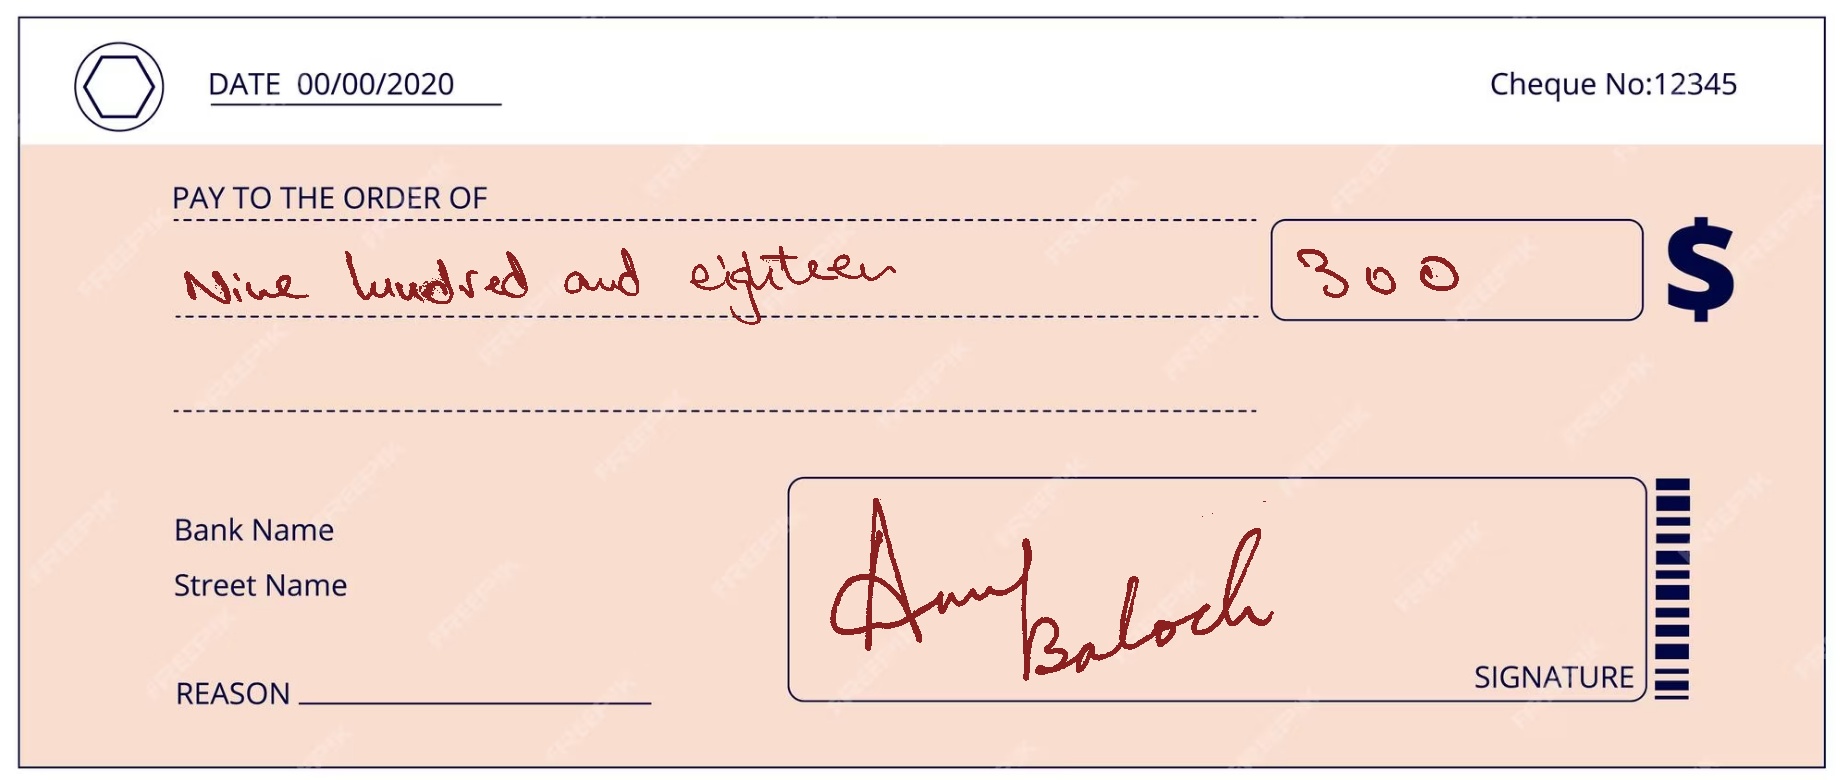 DATE 00/00/2020
Cheque No:12345
PAY TO THE ORDER OF
Nine hundred and eighteen
300 $
Bank Name
Street Name
Baloch
SIGNATURE
REASON